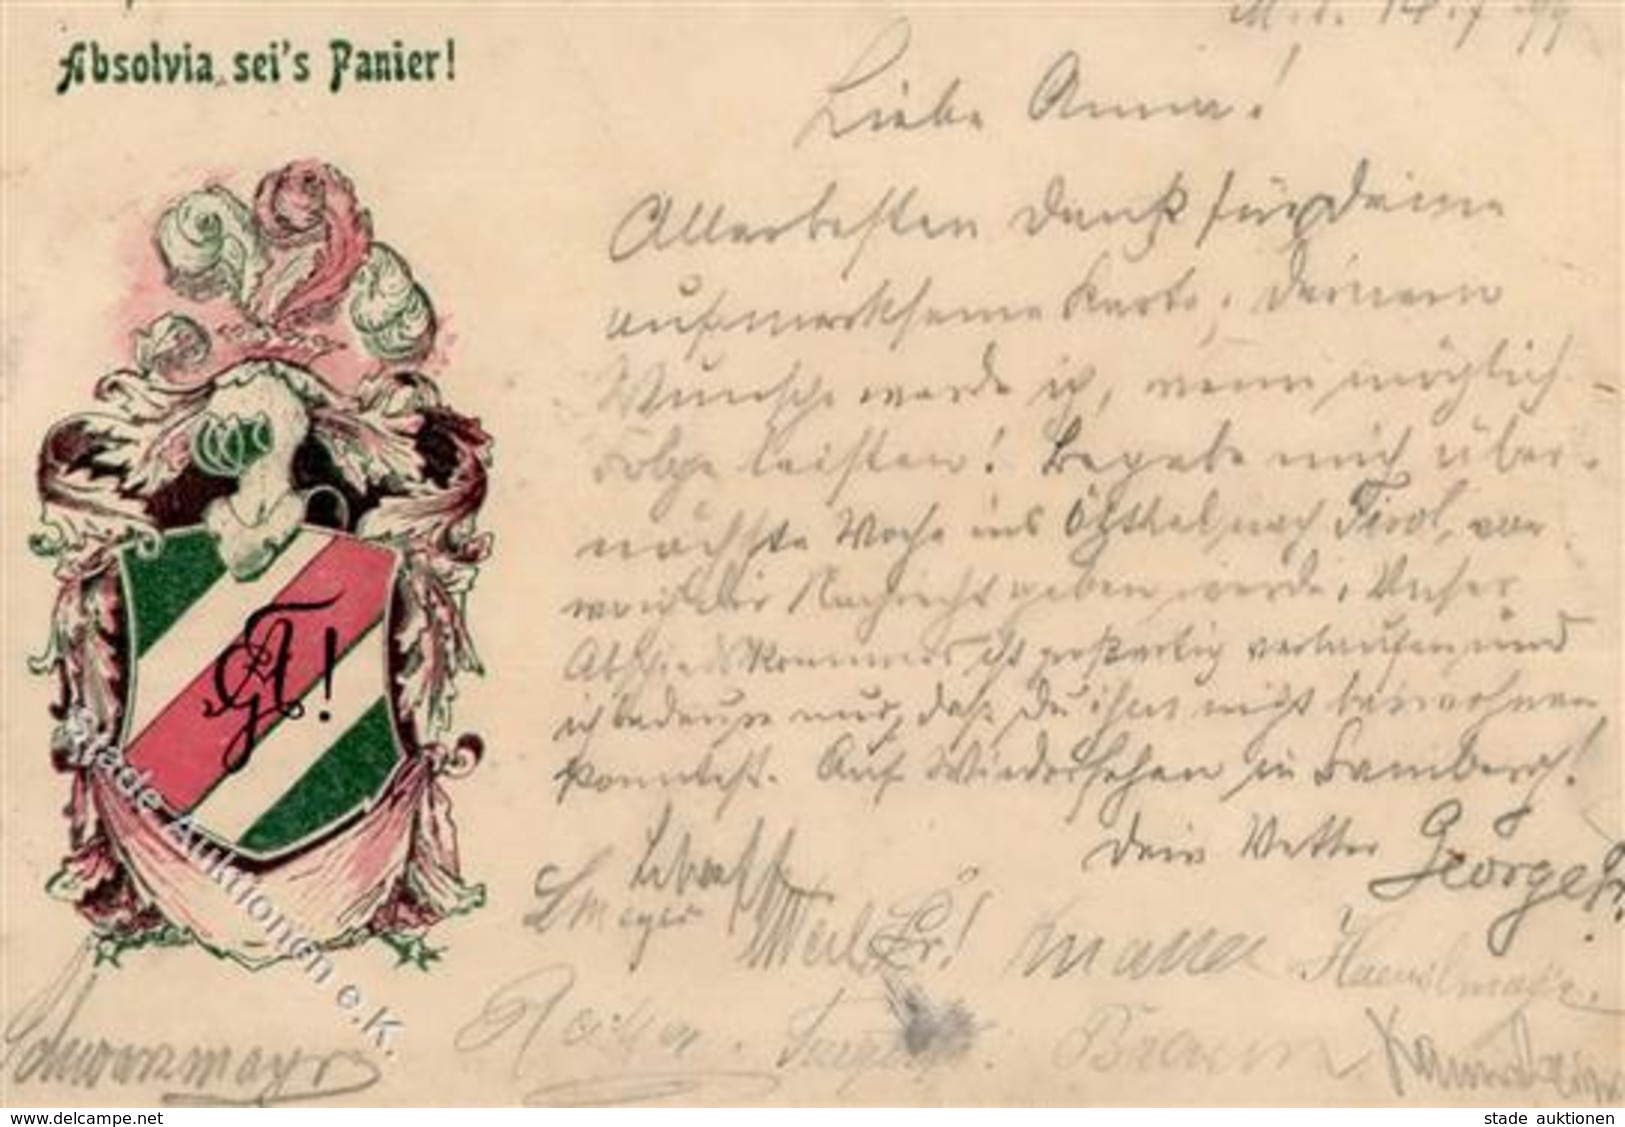 Absolvia sei's Panier!
14.7.99
Liebe Anna!
Allerbesten Dank für Deine
aufmerksame Karte, Deinem
Wunsche werde ich, wenn möglich
Folge leisten! Begebe mich über-
nächste Woche ins Ötzthal nach Tirol, von
wo ich Dir Nachricht geben werde. Unser
Abschiedskommers ist großartig verlaufen und
ich bedaure nur, daß Du ihm nicht beiwohnen
konntest. Auf Wiedersehen in Bamberg!
Dein Vetter George
Meyer
Weil
Haeuslmayr.
Schwarzmayr
Braun
A!
Stade Auktionen e.K.
www.delcampe.net
stade auktionen